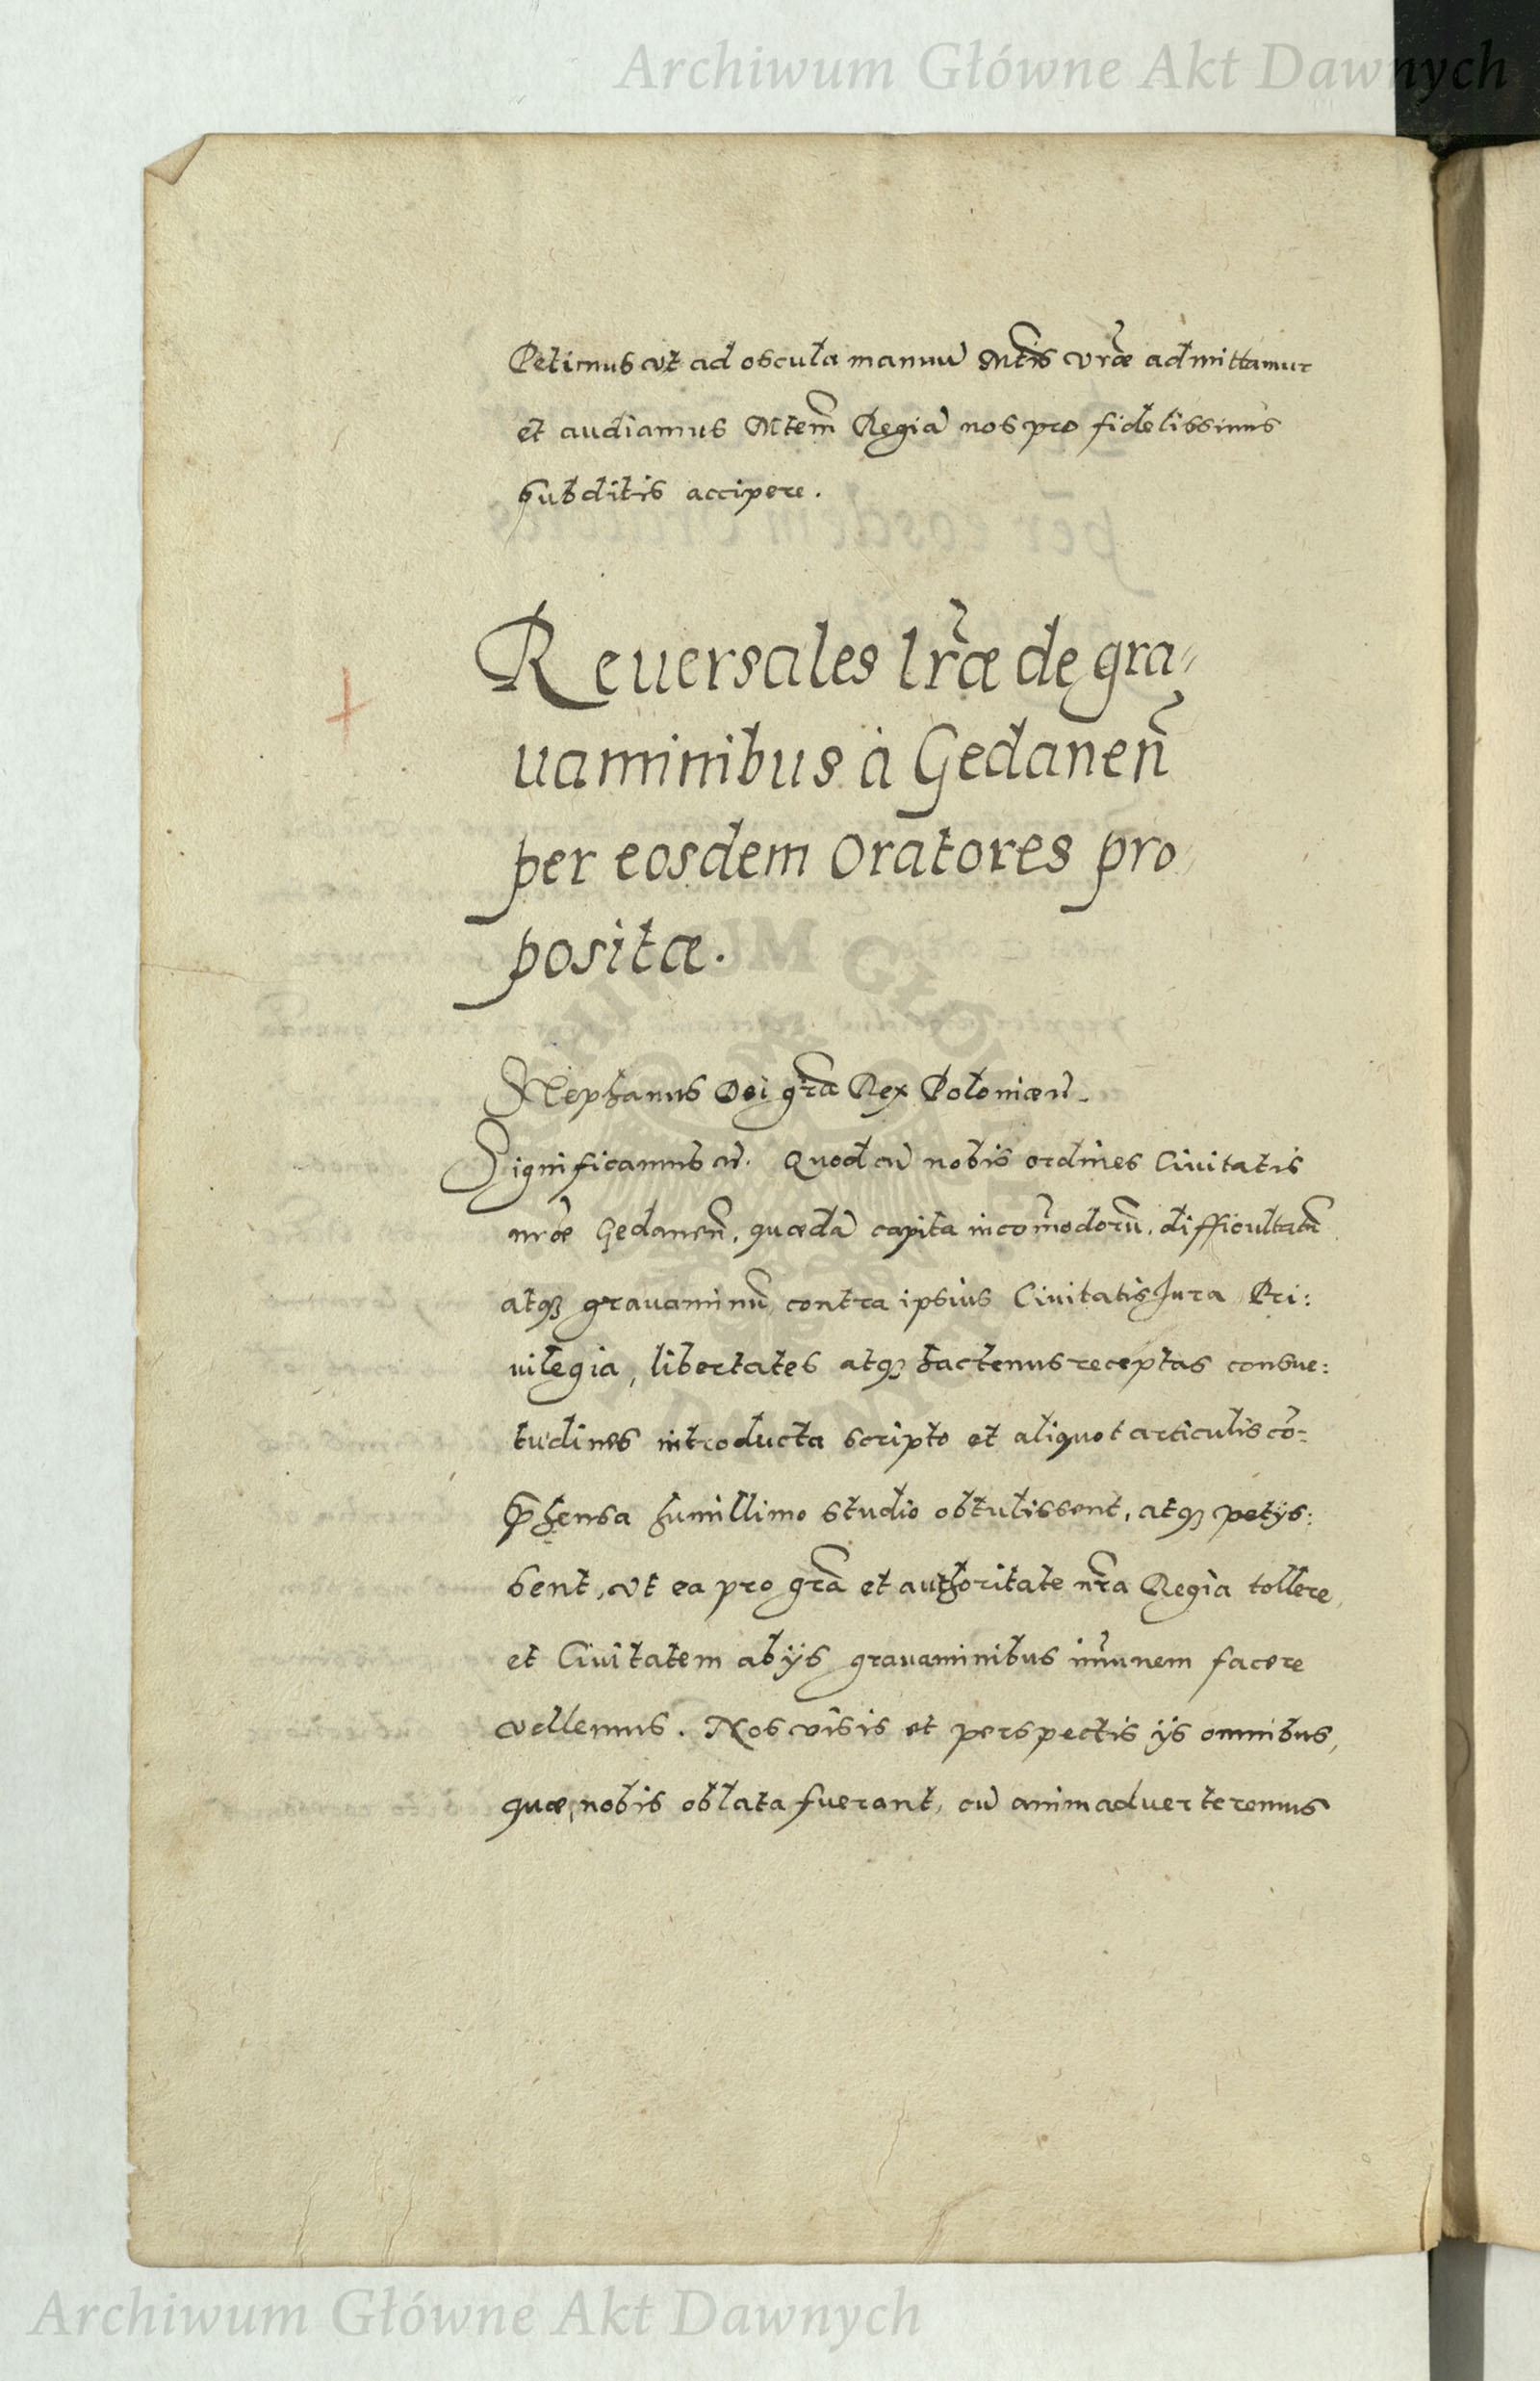 Archiwum Główne Akt Dawnych
Petimus vt ad oscula manuũ Mtis vræ admittamur
et audiamus Mtem Regiã nos pro fidelissimis
subditis accipere.
Reuersales lr̃æ de gra„
uaminibus à Gedaneñ
per eosdem Oratores pro„
positæ.
Stephanus Dei grã Rex Poloniæ
Significamus Quod cũ nobis ordines Ciuitatis
nræ Gedaneñ, quædã capita incom̃odorũ, difficultatũ
atq₃ grauaminũ contra ipsius Ciuitatis Jura Pri:
uilegia, libertates atq₃ hactenus receptas consue:
tudines introducta scripto et aliquot articulis cõ=
p̃hensa humillimo studio obtulissent, atq₃ petijs:
sent, vt ea pro grã et authoritate nrã Regia tollere,
et Ciuitatem ab ijs grauaminibus im̃unem facere
vellemus. Nos visis et perspectis ijs omnibus,
quæ nobis oblata fuerant, cũ animaduerteremus
Archiwum Główne Akt Dawnych